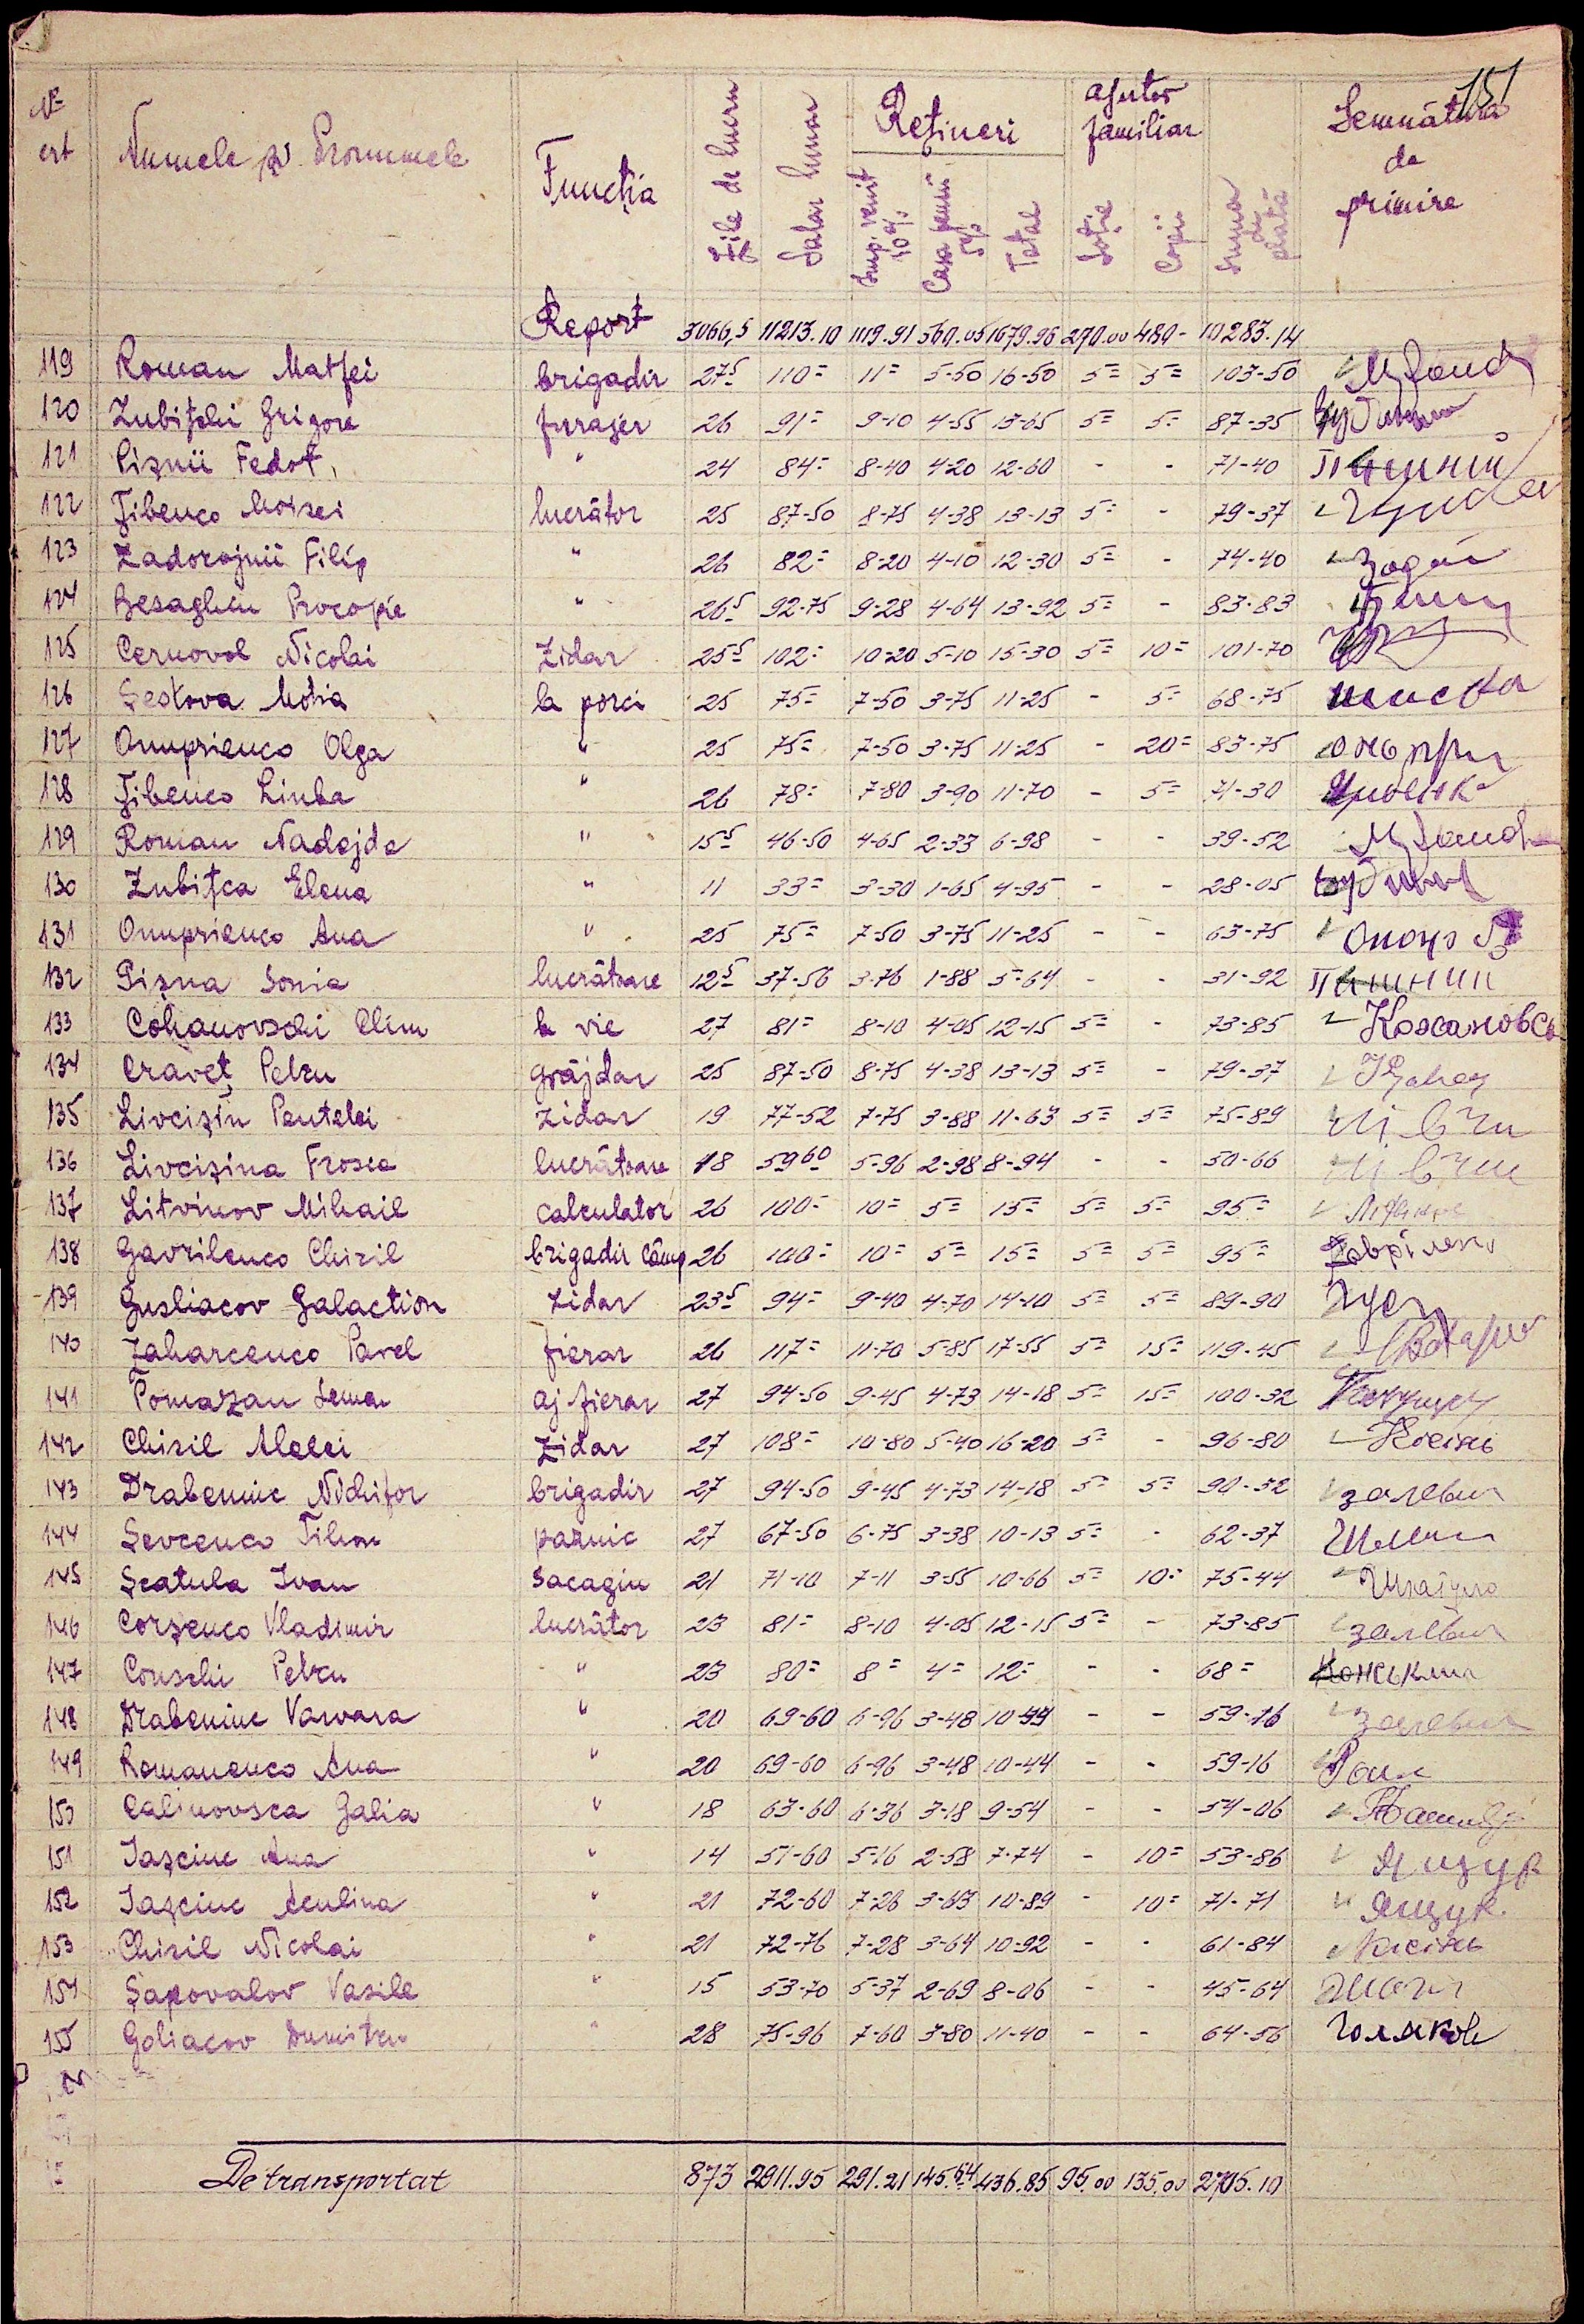 151
Nº crt Numele și Pronumele Funcția Zile de lucru Salar lunar Rețineri Imp. venit 10% Casa pensii 5% Total Ajutor familiar Soție Copii Suma de plată Semnătura de primire
Report 3066,5 11213.10 1119.91 560.05 1679.96 270.00 480- 10283.14
119 Roman Matfei brigadir 27⁵ 110= 11= 5-50 16-50 5= 5= 103-50
120 Zubițchi Grigore furajer 26 91= 9-10 4-55 13-65 5= 5= 87-35
121 Pișnii Fedot " 24 84= 8-40 4-20 12-60 - - 71-40 Пишний
122 Țibenco Moisei lucrător 25 87-50 8-75 4-38 13-13 5= - 79-37
123 Zadorojnii Filip " 26 82= 8-20 4-10 12-30 5= - 74-40
124 Besaghin Procopie " 26⁵ 92-75 9-28 4-64 13-92 5= - 83-83
125 Cernovol Nicolai Zidar 25⁵ 102= 10-20 5-10 15-30 5= 10= 101-70
126 Șestova Motia la porci 25 75= 7-50 3-75 11-25 - 5= 68-75
127 Onuprienco Olga " 25 75= 7-50 3-75 11-25 - 20= 83-75
128 Țibenco Liuba " 26 78= 7-80 3-90 11-70 - 5= 71-30
129 Roman Nadejda " 15⁵ 46-50 4-65 2-33 6-98 - - 39-52
130 Zubițca Elena " 11 33= 3-30 1-65 4-95 - - 28-05
131 Onuprienco Ana " 25 75= 7-50 3-75 11-25 - - 63-75
132 Pișna Sonia lucrătoare 12⁵ 37-56 3-76 1-88 5-64 - - 31-92 Пишнии
133 Cohanovschi Clim la vie 27 81= 8-10 4-05 12-15 5= - 73-85
134 Craveț Petru grăjdar 25 87-50 8-75 4-38 13-13 5= - 79-37
135 Livcișin Pentelei Zidar 19 77-52 7-75 3-88 11-63 5= 5= 75-89
136 Livcișina Frosea lucrătoare 18 59⁶⁰ 5-96 2-98 8-94 - - 50-66
137 Litvinov Mihail calculator 26 100= 10= 5= 15= 5= 5= 95=
138 Gavrilenco Chiril brigadir câmp 26 100= 10= 5= 15= 5= 5= 95=
139 Gusliacov Galaction Zidar 23⁵ 94= 9-40 4-70 14-10 5= 5= 89-90
140 Zaharcenco Pavel fierar 26 117= 11-70 5-85 17-55 5= 15= 119-45
141 Pomazan Seman aj fierar 27 94-50 9-45 4-73 14-18 5= 15= 100-32
142 Chiril Alecei Zidar 27 108= 10-80 5-40 16-20 5= - 96-80
143 Drabeniuc Nichifor brigadir 27 94-50 9-45 4-73 14-18 5= 5= 90-32
144 Șevcenco Tihon paznic 27 67-50 6-75 3-38 10-13 5= - 62-37
145 Șcatula Ivan Sacagiu 21 71-10 7-11 3-55 10-66 5= 10= 75-44
146 Corșenco Vladimir lucrător 23 81= 8-10 4-05 12-15 5= - 73-85
147 Conschi Petru " 23 80= 8= 4= 12= - - 68=
148 Drabeniuc Varvara " 20 69-60 6-96 3-48 10-44 - - 59-16
149 Romanenco Ana " 20 69-60 6-96 3-48 10-44 - - 59-16
150 Calinovsca Galia " 18 63-60 6-36 3-18 9-54 - - 54-06
151 Iașciuc Ana " 14 51-60 5-16 2-58 7-74 - 10= 53-86
152 Iașciuc Aculina " 21 72-60 7-26 3-63 10-89 - 10= 71-71 Ящук
153 Chiril Nicolai " 21 72-76 7-28 3-64 10-92 - - 61-84
154 Șapovalov Vasile " 15 53-70 5-37 2-69 8-06 - - 45-64
155 Goliacov Dumitru " 28 75-96 7-60 3-80 11-40 - - 64-56 Голяков
De transportat 873 2911.95 291.21 145.64 436.85 95.00 135.00 2705.10